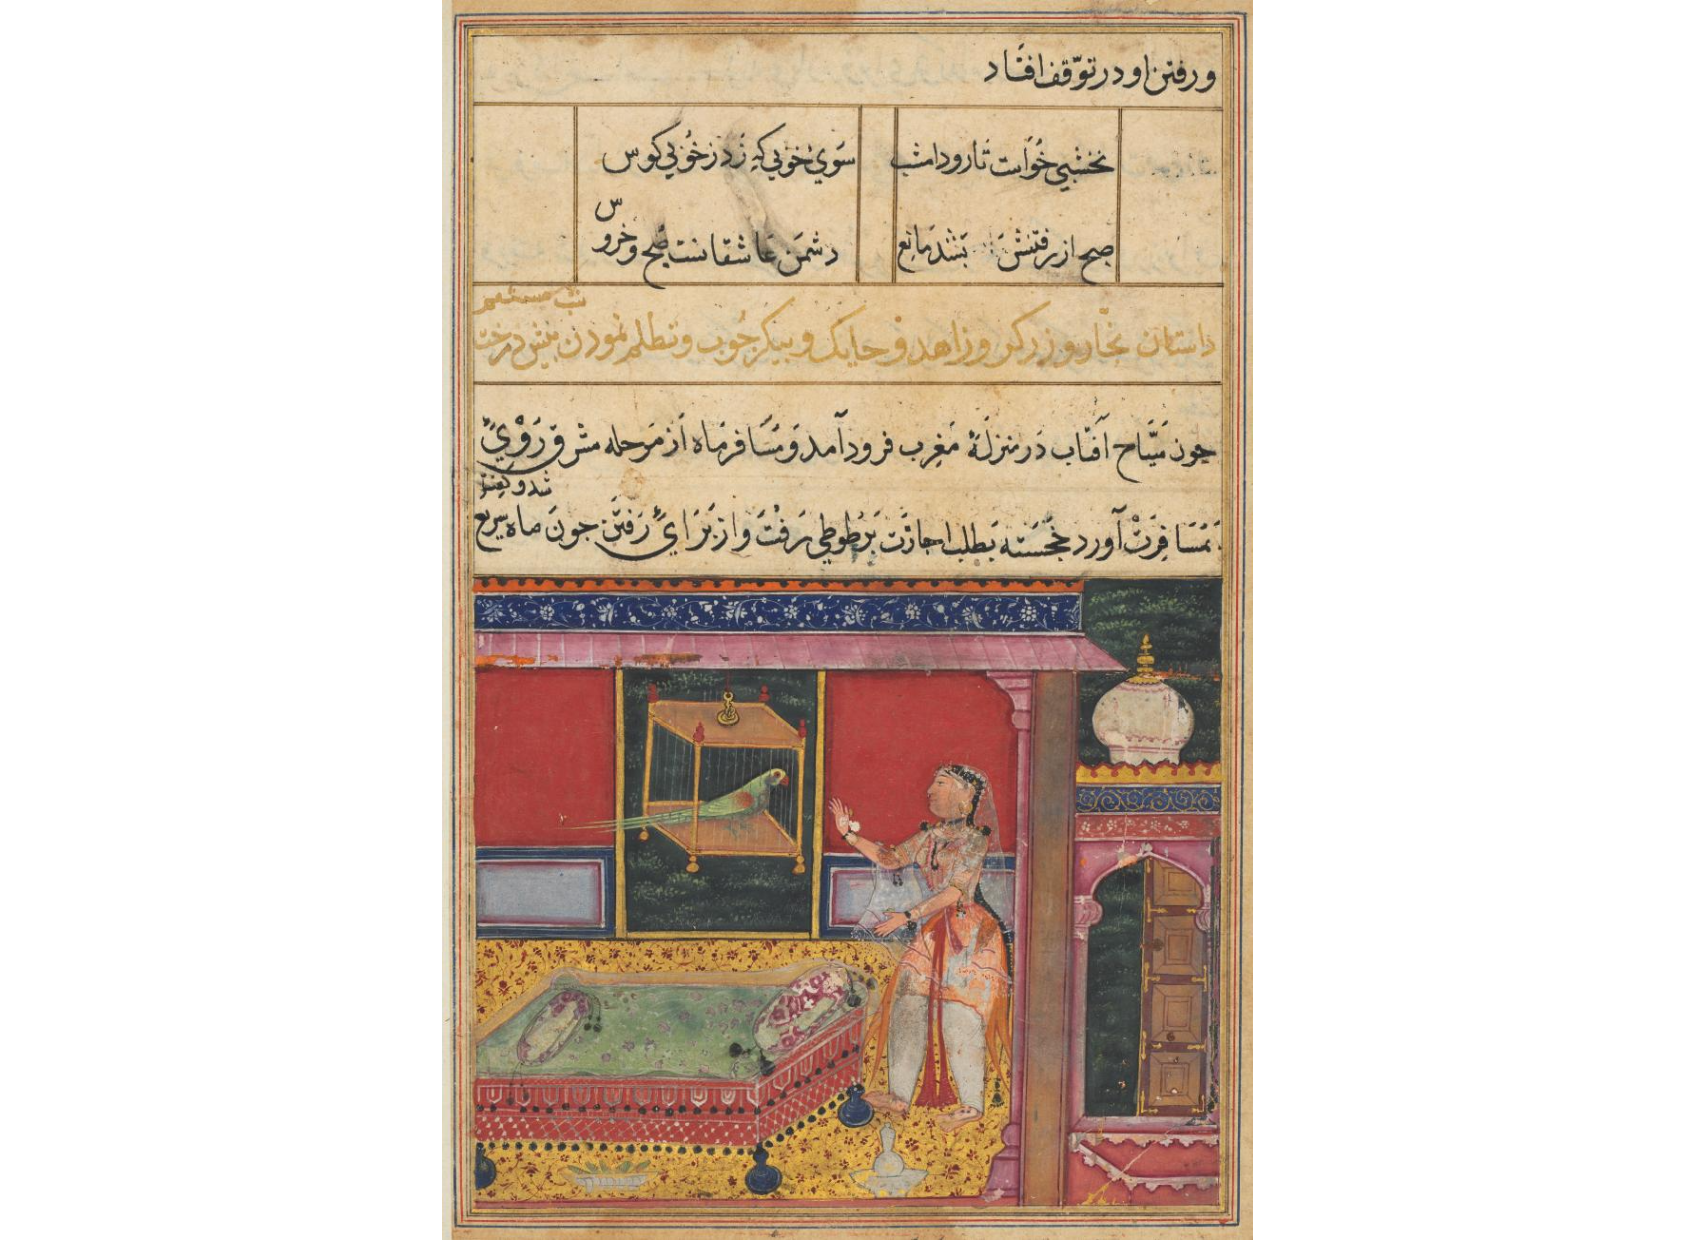 و رفتن او در توقف افتاد
نخشبی خواست تا رود امشب سوی خوبی که زد ز خوبی کوس
صبح از رفتنش بشد مانع دشمن عاشقانست صبح و خروس
شب ششم
داستان نجار و زرگر و زاهد و حایک و پیکر چوب و تظلم نمودن پیش درخت
چون سیاح آفتاب در منزلهٔ مغرب فرود آمد و مسافر ماه از مرحله مشرق روی
بمسافرت آورد خجسته بطلب اجازت بر طوطی رفت و از برای رفتن چون ماه سریع
شد و گفت